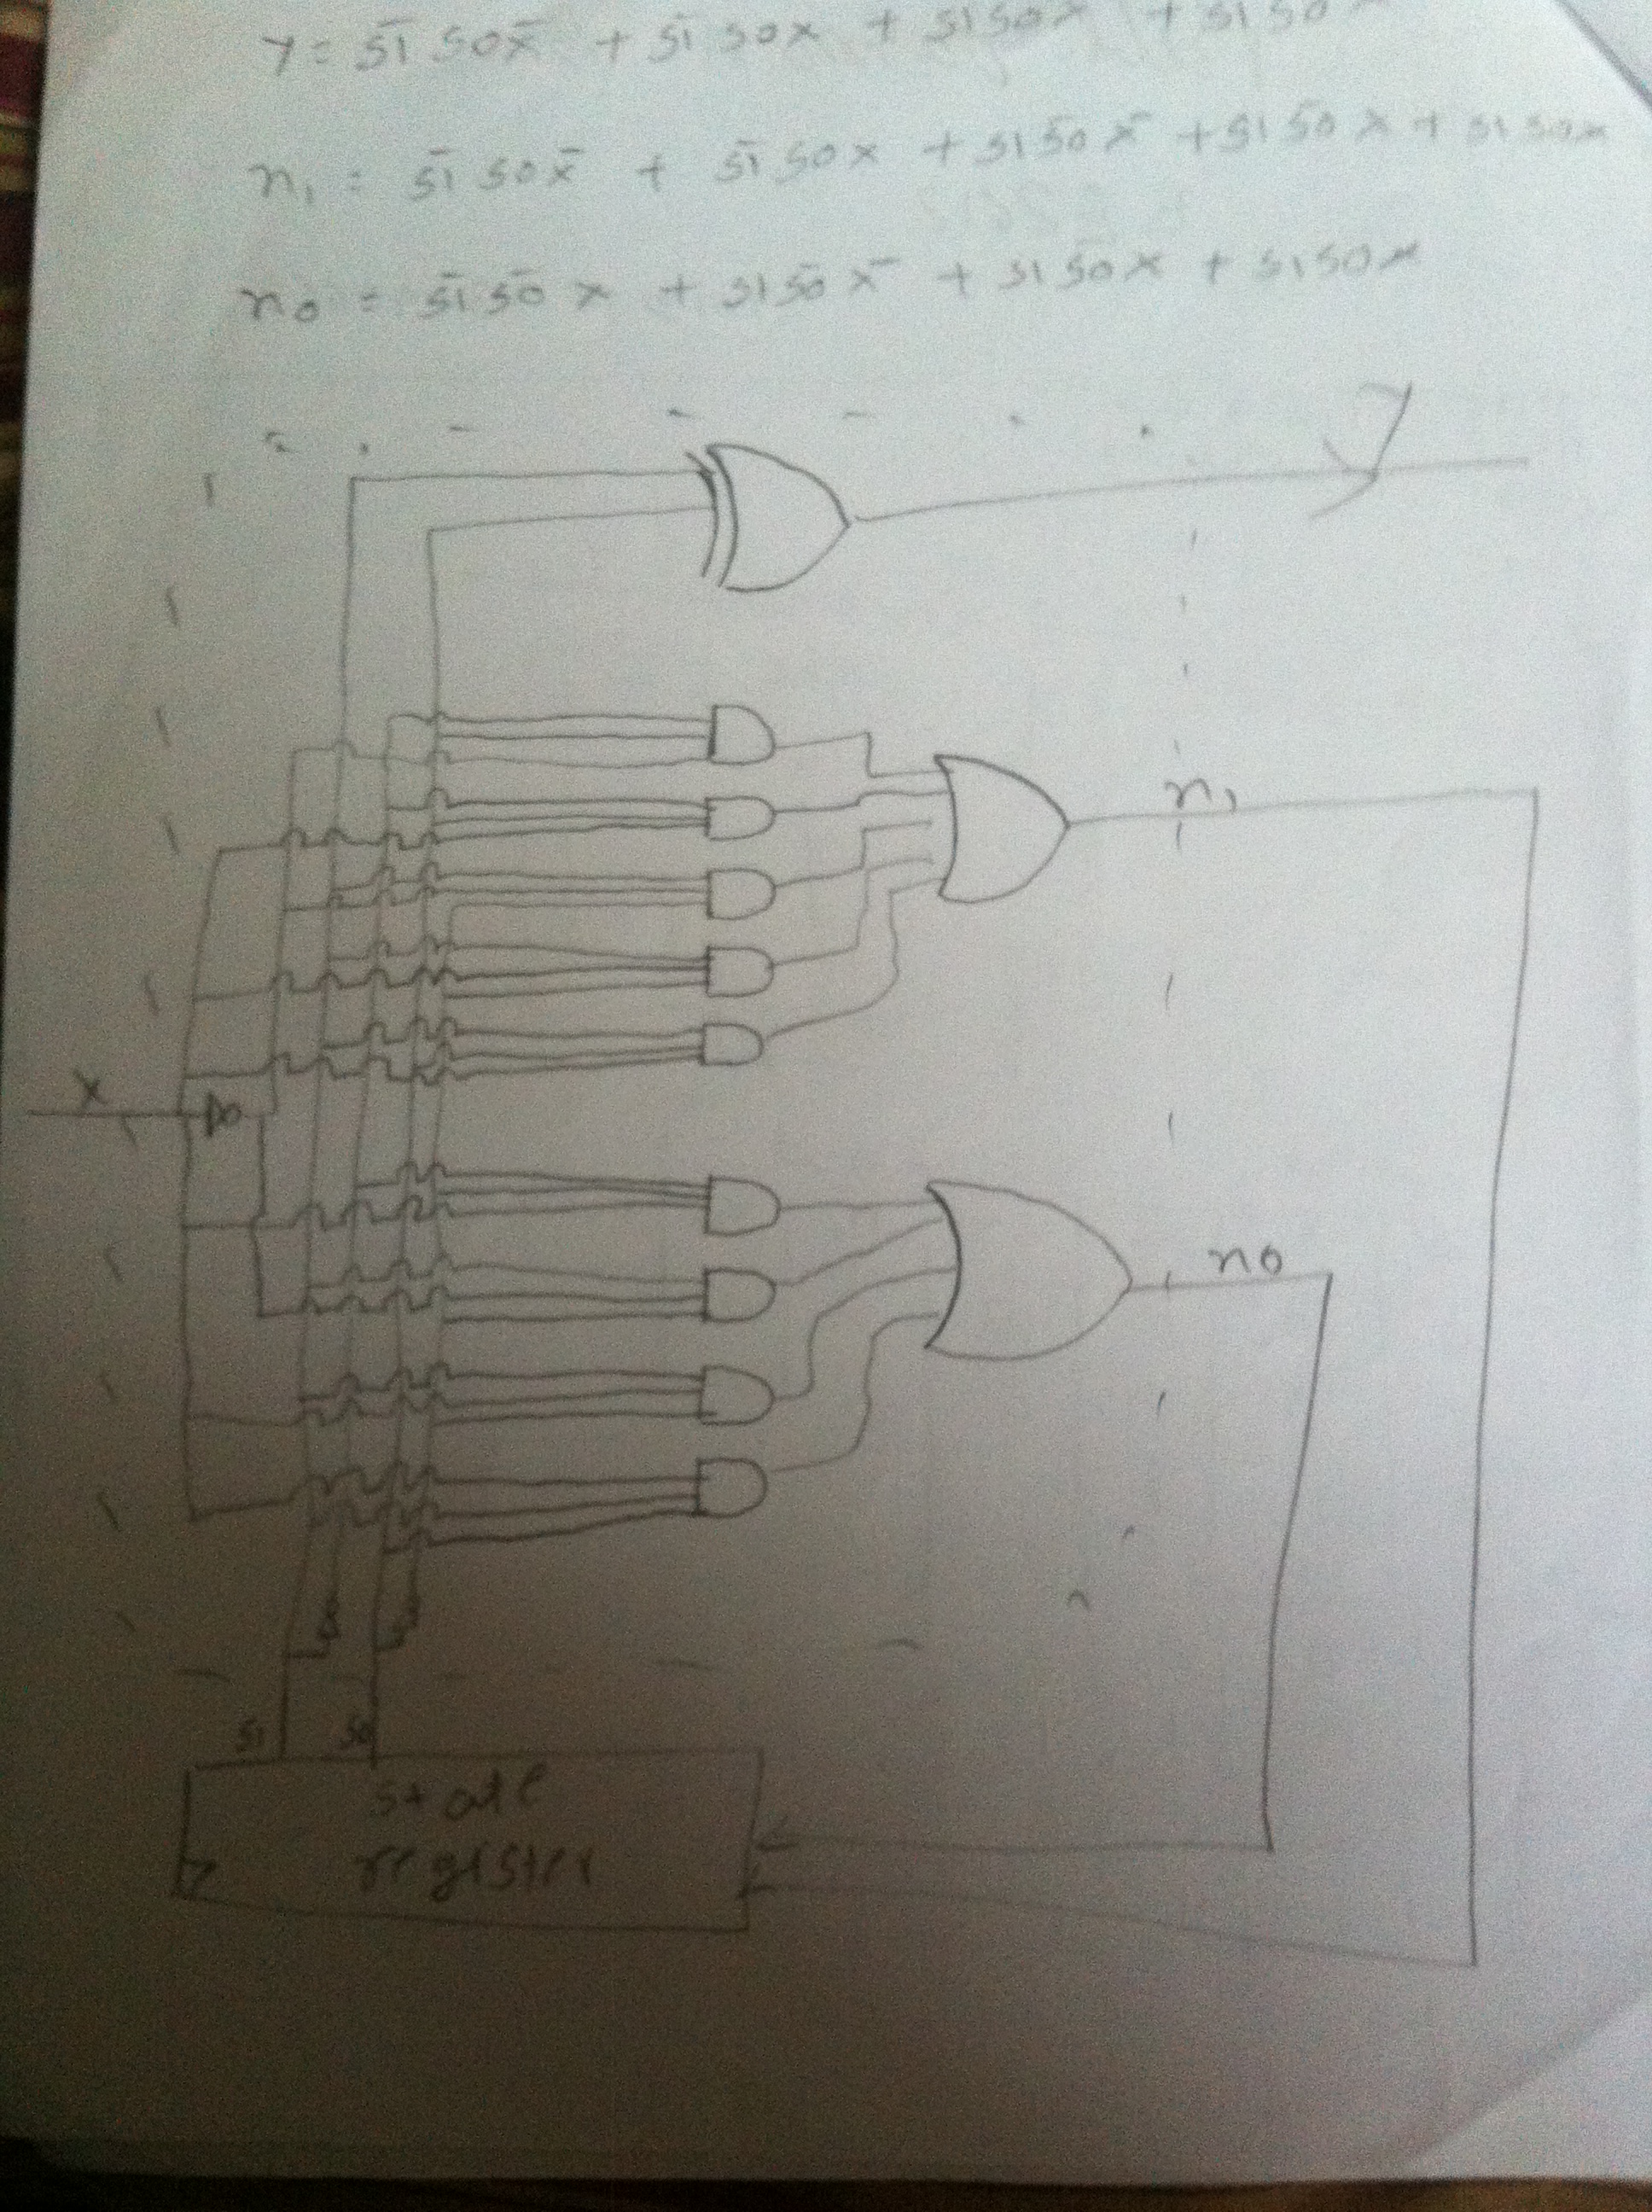 y = s̄1 s0 x̄ + s̄1 s0 x + s1 s̄0 x̄ + s1 s̄0 x
n1 = s̄1 s0 x̄ + s̄1 s0 x + s1 s̄0 x̄ + s1 s̄0 x + s1 s0 x
n0 = s̄1 s̄0 x + s1 s̄0 x̄ + s1 s̄0 x + s1 s0 x
y
n1
x
n0
s1 s0
state
register